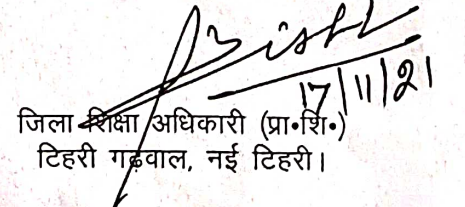 17/11/21
जिला शिक्षा अधिकारी (प्रा॰शि॰)
टिहरी गढ़वाल, नई टिहरी।